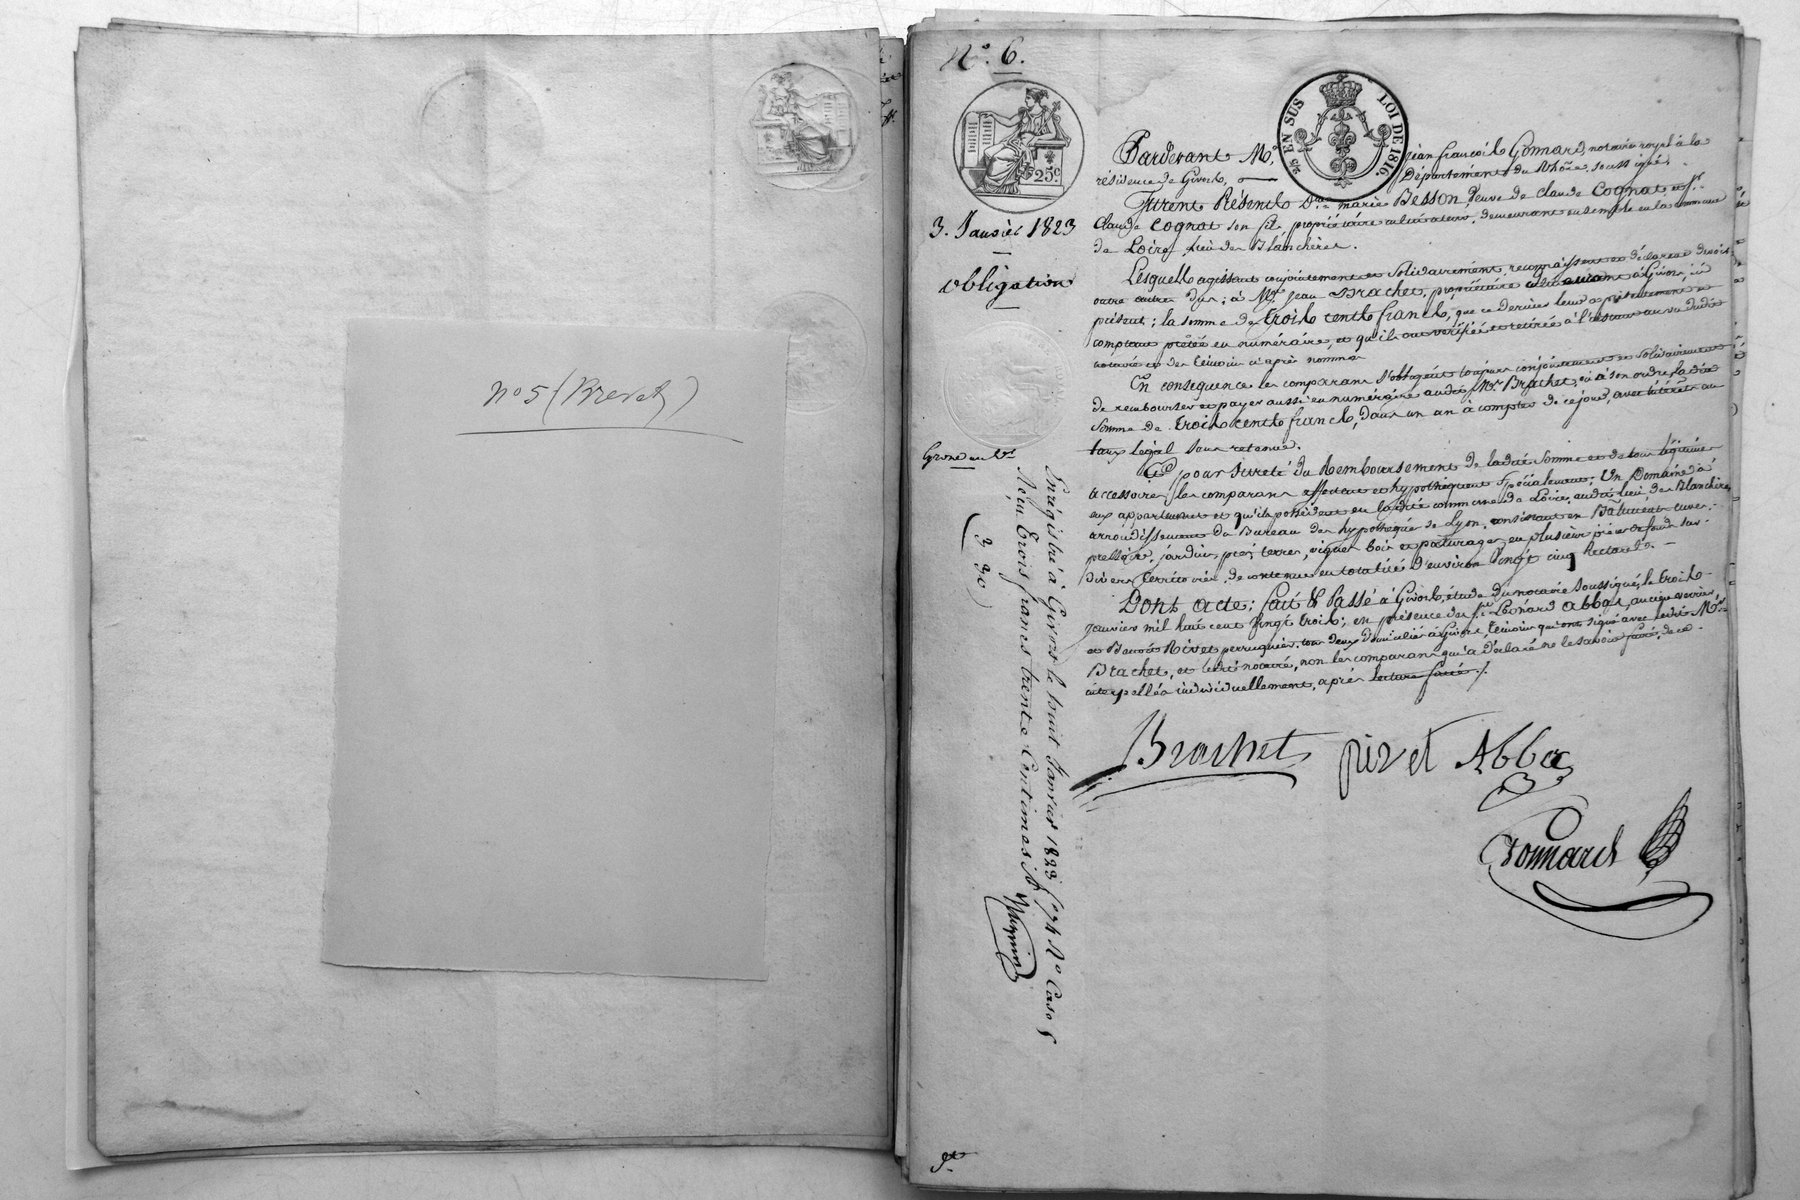 n° 5 (Brevet)
N° 6.
25c
2/5 EN SUS LOI DE 1816
3. Janvier 1823
obligation
Pardevant Me. Jean françois Gonnard, notaire royal à la
résidence de Givors, Département du Rhône, soussigné,
furent Présents dme marie Besson, veuve de claude Cognat et sr.
claude Cognat son fils, propriétaires cultivateurs, demeurant ensemble en la commune
de Loire, lieu des Blanchères.
Lesquels agissant conjointement et Solidairement, reconnaissent et déclarent devoir
à Mr. Jean Brachet, propriétaire demeurant à Givors, ici
présent; la somme de trois cents francs, que ce dernier leur a présentement et
comptant prêtée en numéraire, et qu'ils ont vérifiée et retirée à l'instant au vu dudit
notaire et des témoins ci après nommés.
En conséquence les comparans s'obligent toujours conjointement et Solidairement
de rembourser et payer aussi en numéraire audit Mr. Brachet, ou à son ordre ladite
somme de trois cents francs, dans un an à compter de ce jour, avec intérêts au
taux légal sans retenue.
Et pour sureté du Remboursement de ladite somme et de tous légitimes
accessoires les comparans affectent et hypothèquent spécialement; Un Domaine à
eux appartenant et qu'ils possèdent en ladite commune de Loire, audit lieu, des Blanchères
arrondissement du Bureau des hypothèques de Lyon, consistant en Bâtiment, cuver,
pressoir, jardin, prés, terres, vignes, bois et pâturages, en plusieurs pièces de fonds sur
divers territoires, de contenue en totalité d'environ vingt cinq hectares.
Dont acte; fait & Passé à Givors, étude du notaire soussigné, le trois
janvier mil huit cent vingt trois; en présence des srs. Léonard Abbas, ancien verrier,
et Benoît Rivet perruquier, tous deux domiciliés à Givors, témoins qui ont signé avec ledit Mr.
Brachet, et ledit notaire, non les comparans qui ont déclaré ne le savoir faire, de ce
interpellés individuellement, après lecture faite ./.
Brachet
Abba
Gonnard
Grosse au
Enrégistré à Givors le huit Janvier 1823 fo 74 Ro Case 5
Reçu trois francs trente Centimes
( 3 30 )